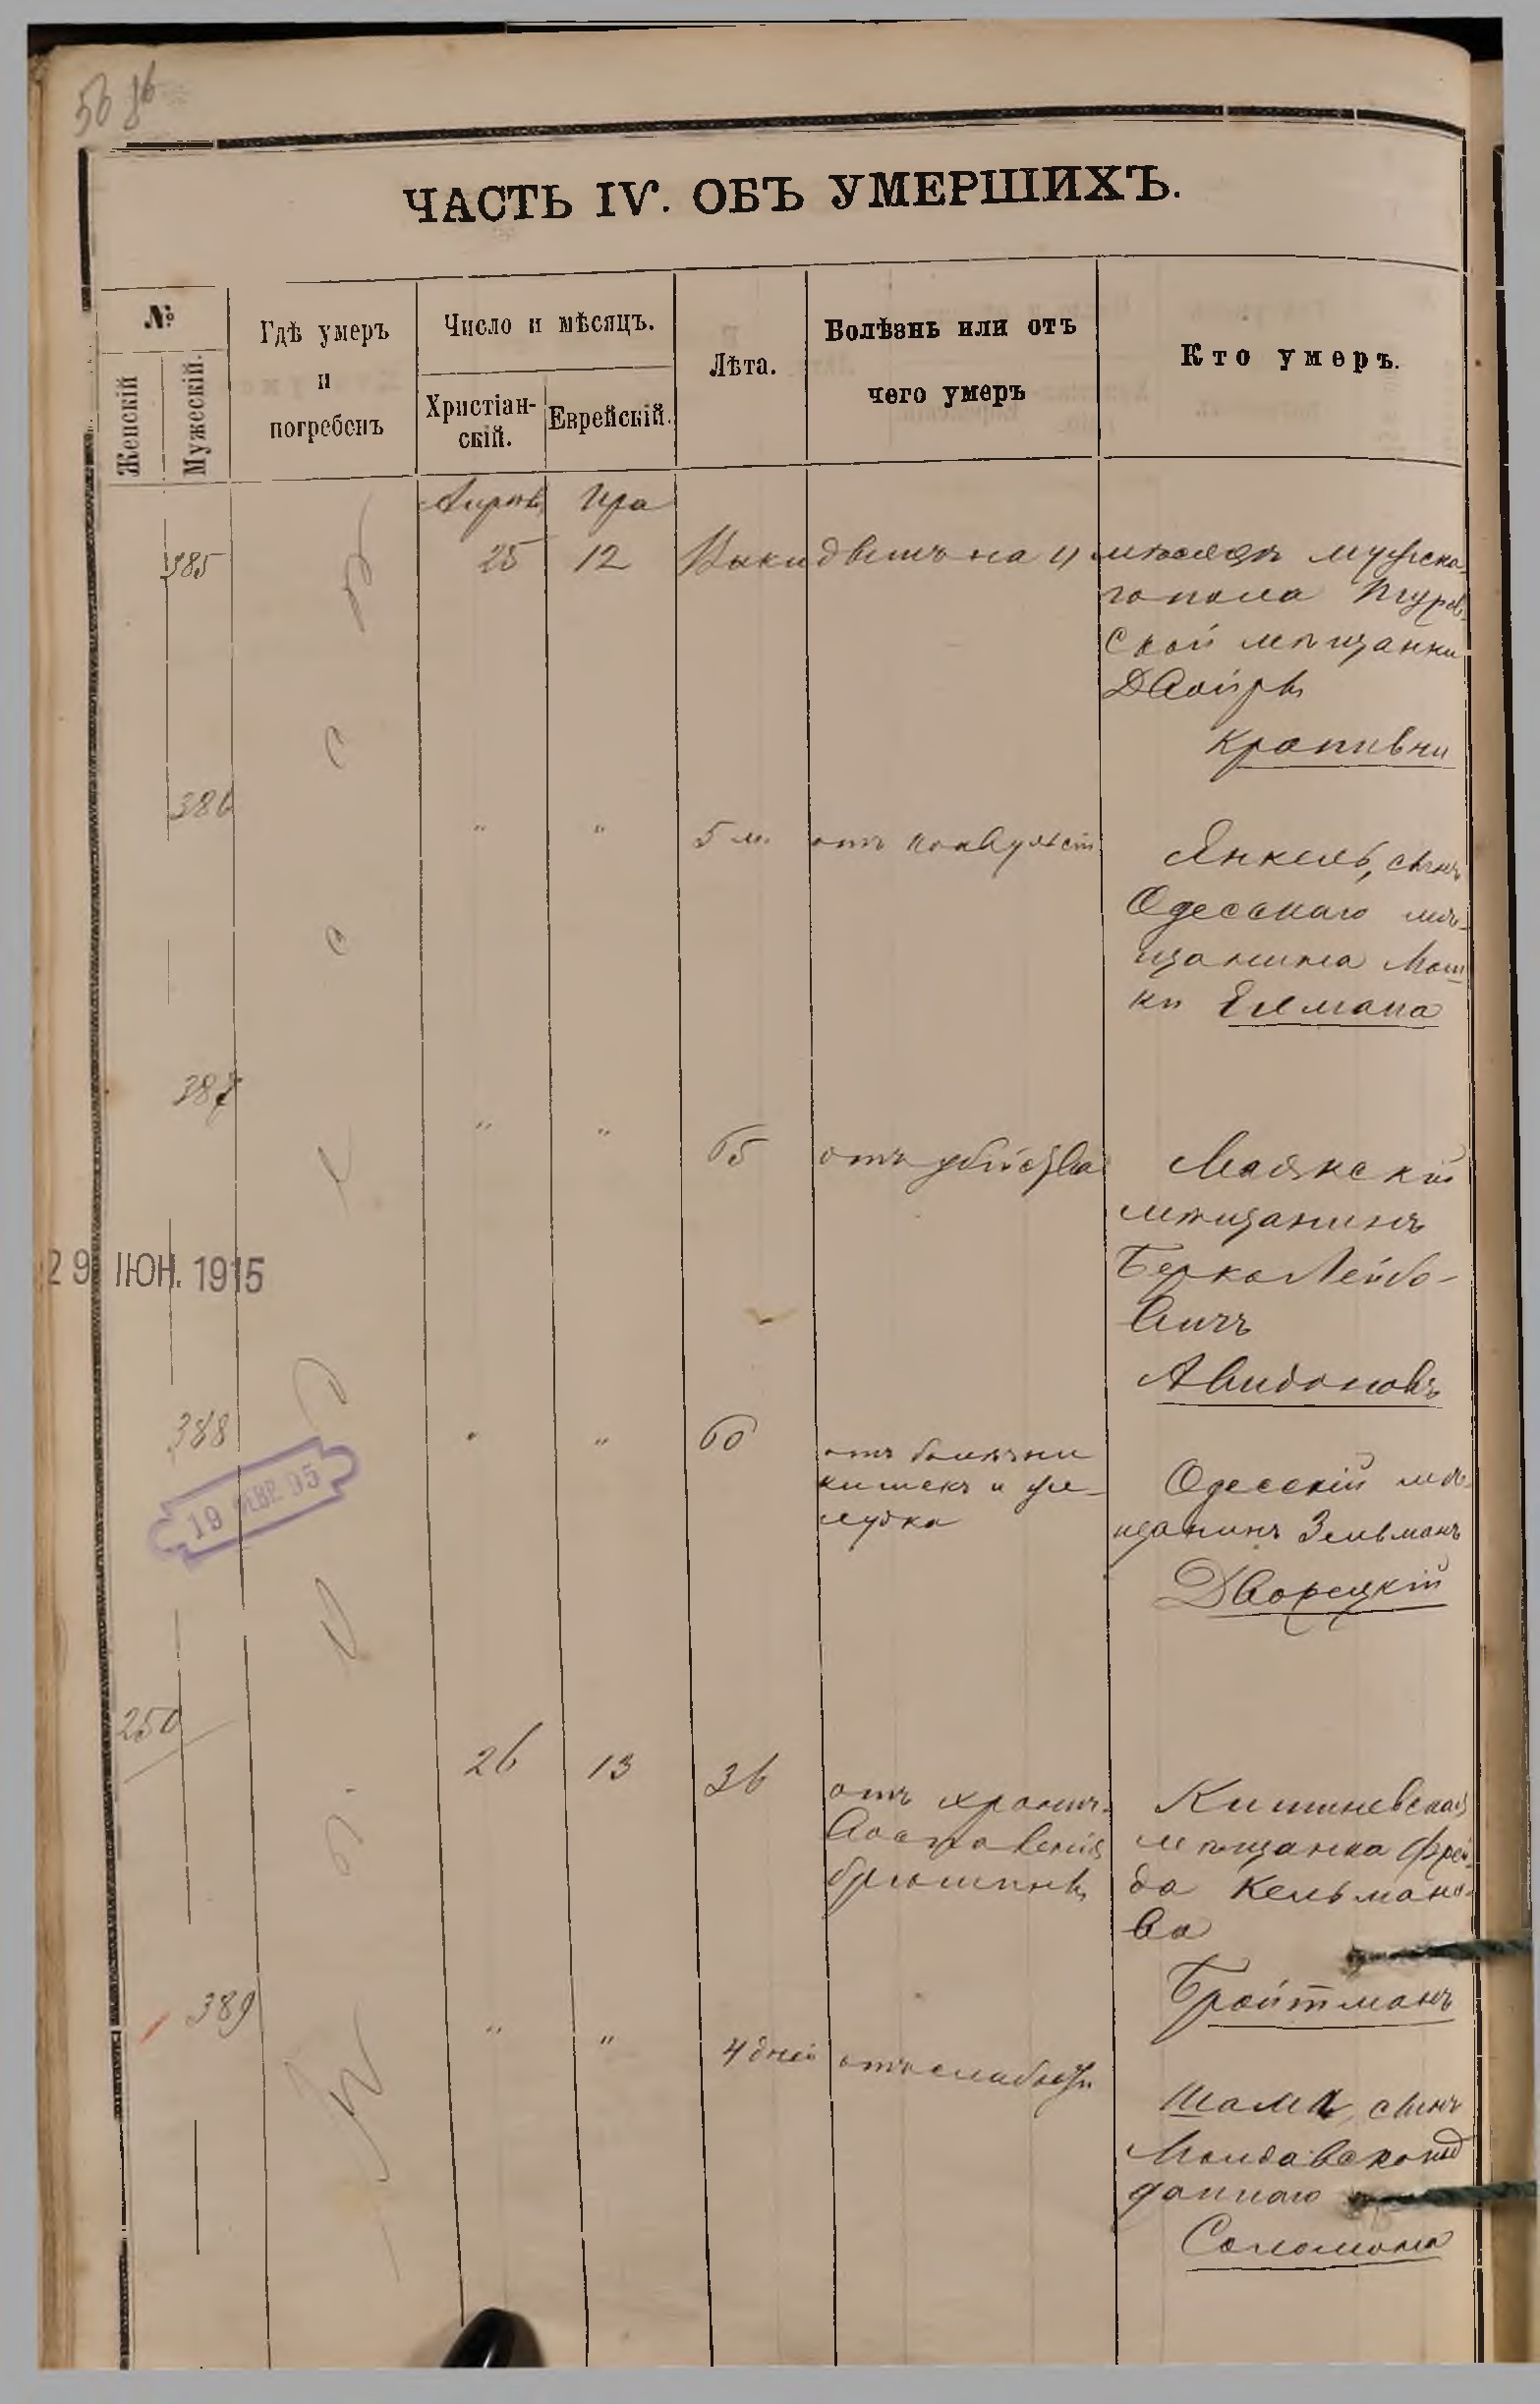 ЧАСТЬ IV. ОБЪ УМЕРШИХЪ.
№
Женскій
Мужескій.
Гдѣ умеръ
и
погребенъ
Число и мѣсяцъ.
Христіан-
скій.
Еврейскій.
Лѣта.
Болѣзнь или отъ
чего умеръ
Кто умеръ.
Апрѣль Ира
385 25 12 Выкидышъ на 4 мѣсяцѣ мужска-
го пола
ской мѣщанки
Двойры
Крапивни
386 " " 5 м. отъ конвульсій
Янкель, сынъ
Одесскаго мѣ-
щанина Мош-
ки Елмана
387 " " 65 отъ убійства
Маякскій
мѣщанинъ
Берко Лейбо-
вичъ
Авидоновъ
29 ІЮН. 1915
388 " " 60 отъ болѣзни
кишекъ и же-
лудка
Одесскій мѣ-
щанинъ Зельманъ
Дворецкій
19 95
250 26 13 36 отъ хронич.
воспаленія
брюшины
Кишиневская
мѣщанка Фрей-
да Кельмано-
ва
Бройтманъ
389 " " 4 дней отъ слабости
сынъ
Молдавско под
даннаго
Соломона